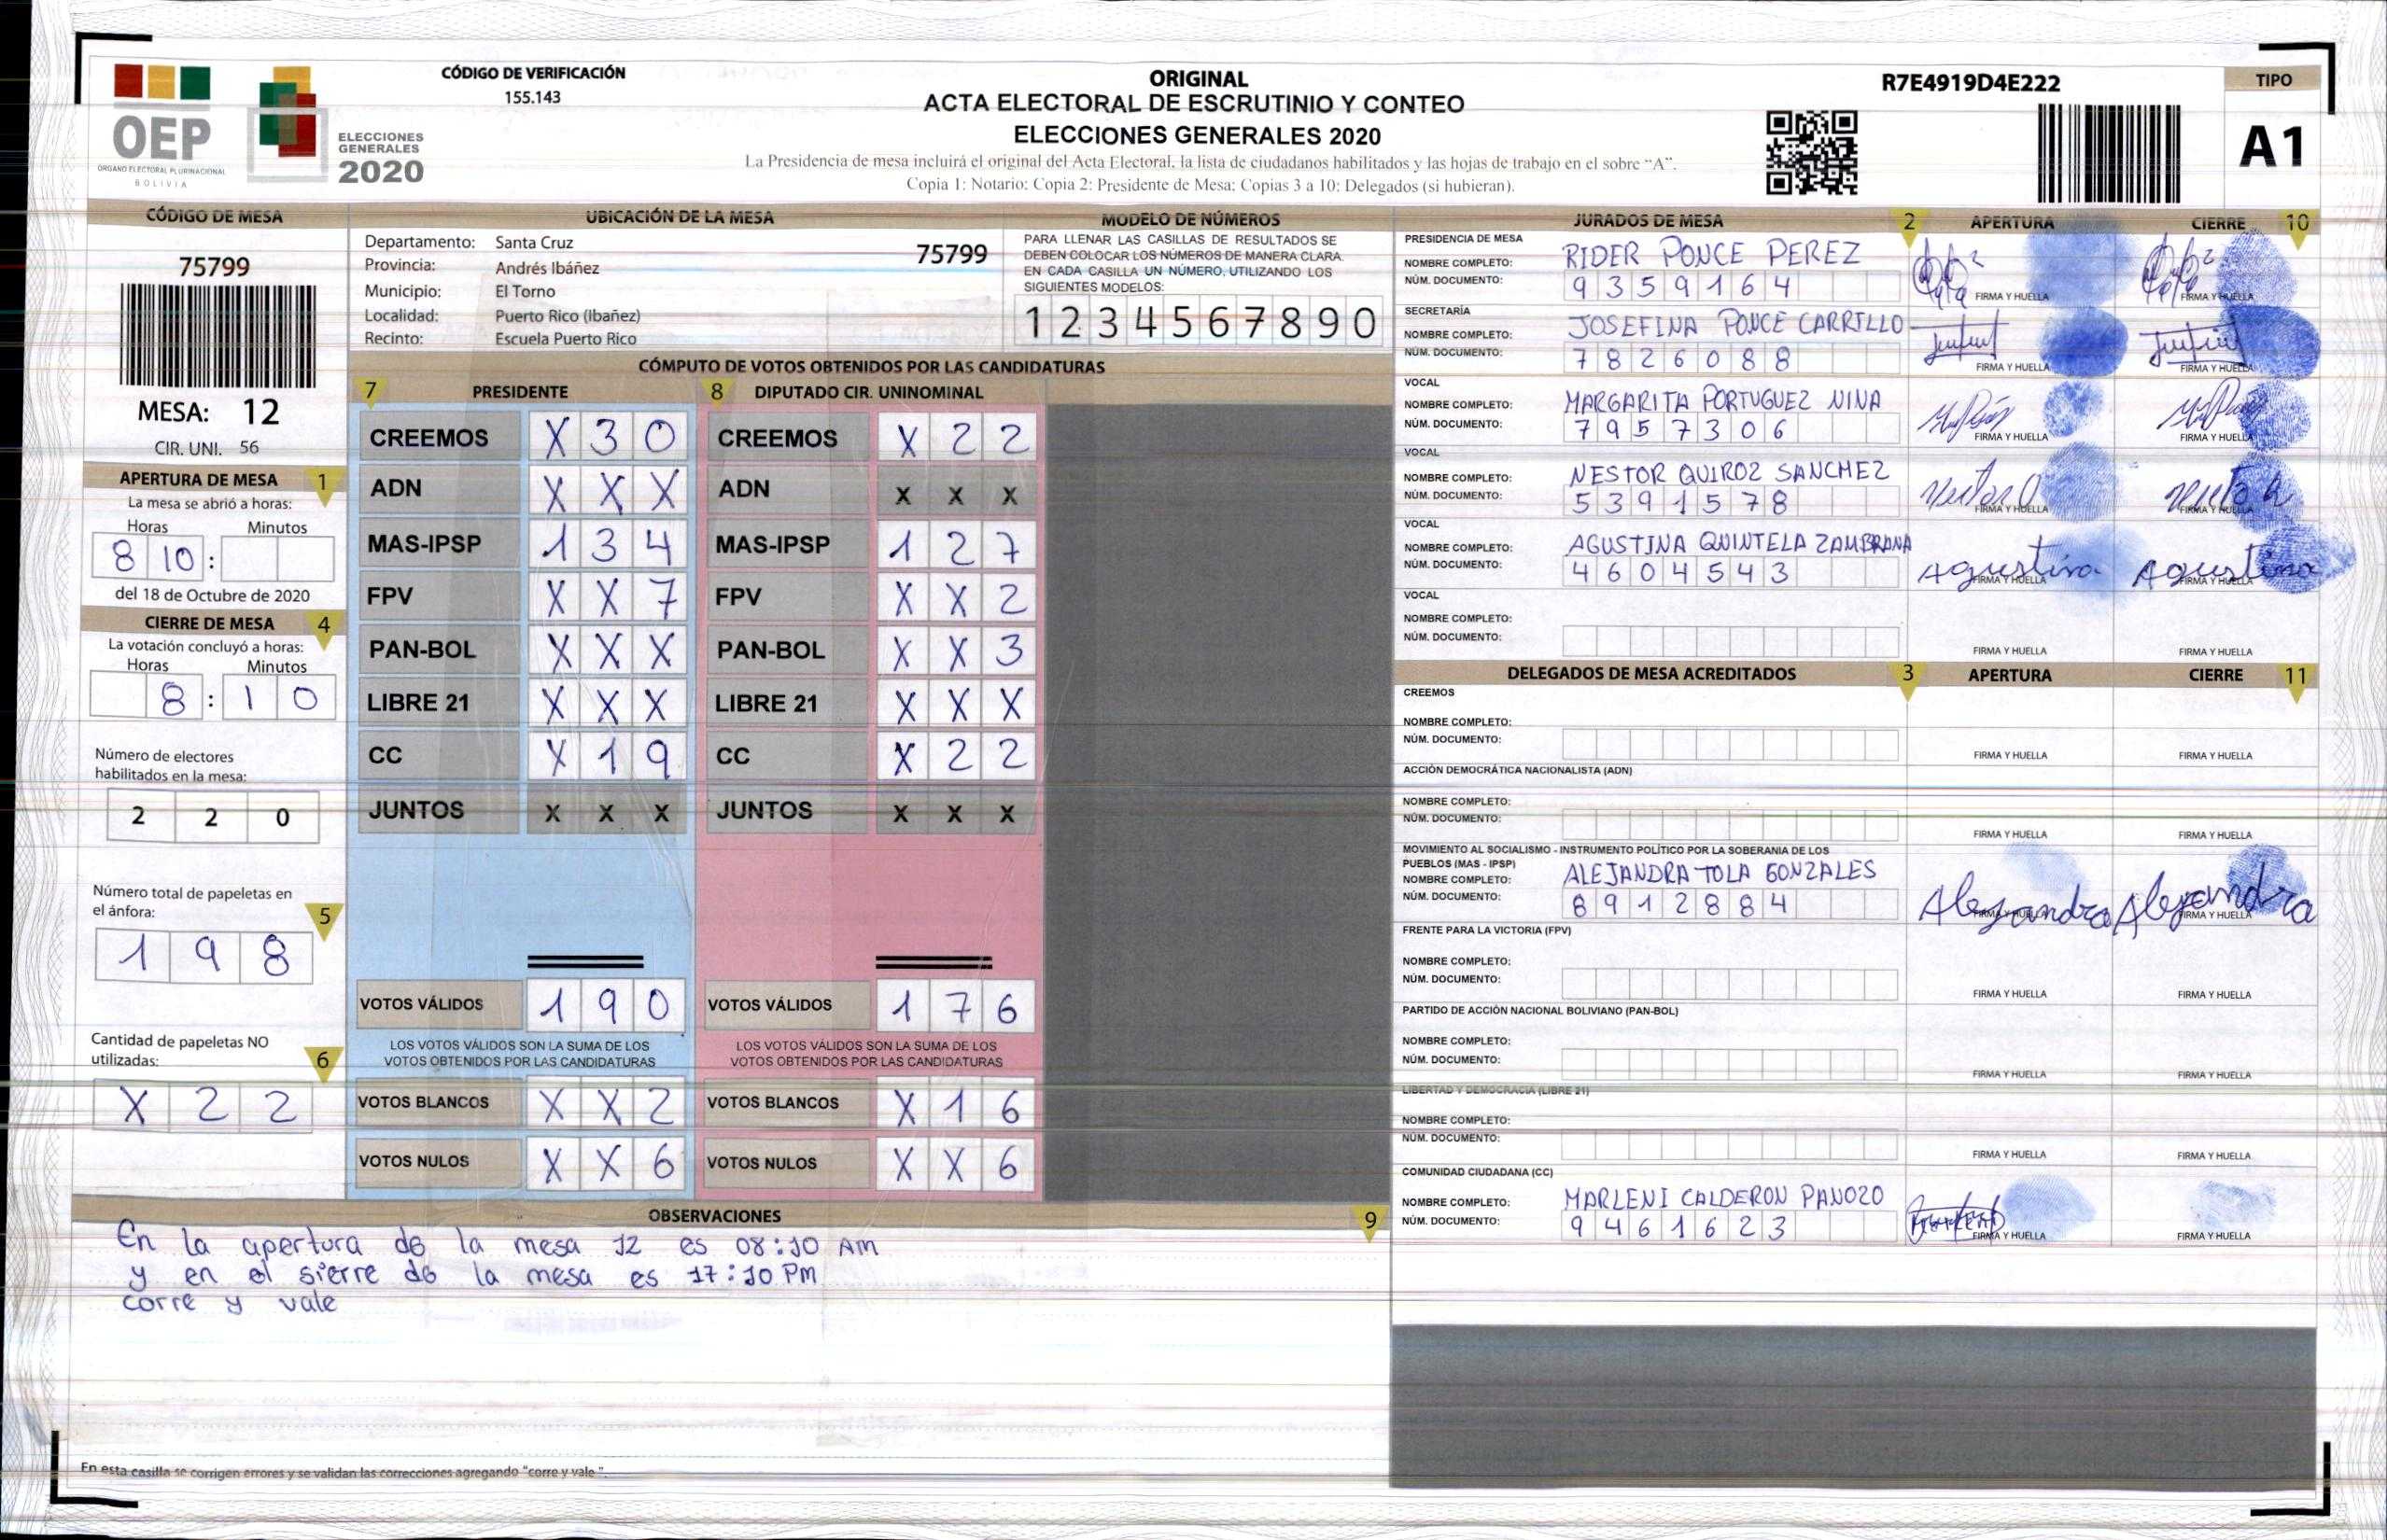 CÓDIGO DE VERIFICACIÓN
155.143
OEP
ORGANO ELECTORAL PLURINACIONAL
BOLIVIA
ELECCIONES
GENERALES
2020
ORIGINAL
ACTA ELECTORAL DE ESCRUTINIO Y CONTEO
ELECCIONES GENERALES 2020
La Presidencia de mesa incluirá el original del Acta Electoral, la lista de ciudadanos habilitados y las hojas de trabajo en el sobre “A”.
Copia 1: Notario; Copia 2: Presidente de Mesa; Copias 3 a 10: Delegados (si hubieran).
R7E4919D4E222
TIPO
A1
CÓDIGO DE MESA
75799
MESA: 12
CIR. UNI. 56
APERTURA DE MESA 1
La mesa se abrió a horas:
Horas Minutos
8 10 :
del 18 de Octubre de 2020
CIERRE DE MESA 4
La votación concluyó a horas:
Horas Minutos
8 : 1 0
Número de electores
habilitados en la mesa:
2 2 0
Número total de papeletas en
el ánfora: 5
1 9 8
Cantidad de papeletas NO
utilizadas: 6
X 2 2
UBICACIÓN DE LA MESA
Departamento: Santa Cruz 75799
Provincia: Andrés Ibáñez
Municipio: El Torno
Localidad: Puerto Rico (Ibañez)
Recinto: Escuela Puerto Rico
MODELO DE NÚMEROS
PARA LLENAR LAS CASILLAS DE RESULTADOS SE
DEBEN COLOCAR LOS NÚMEROS DE MANERA CLARA.
EN CADA CASILLA UN NÚMERO, UTILIZANDO LOS
SIGUIENTES MODELOS:
1 2 3 4 5 6 7 8 9 0
CÓMPUTO DE VOTOS OBTENIDOS POR LAS CANDIDATURAS
7 PRESIDENTE
CREEMOS X 3 0
ADN X X X
MAS-IPSP 1 3 4
FPV X X 7
PAN-BOL X X X
LIBRE 21 X X X
CC X 1 9
JUNTOS X X X
VOTOS VÁLIDOS 1 9 0
LOS VOTOS VÁLIDOS SON LA SUMA DE LOS
VOTOS OBTENIDOS POR LAS CANDIDATURAS
VOTOS BLANCOS X X 2
VOTOS NULOS X X 6
8 DIPUTADO CIR. UNINOMINAL
CREEMOS X 2 2
ADN X X X
MAS-IPSP 1 2 7
FPV X X 2
PAN-BOL X X 3
LIBRE 21 X X X
CC X 2 2
JUNTOS X X X
VOTOS VÁLIDOS 1 7 6
LOS VOTOS VÁLIDOS SON LA SUMA DE LOS
VOTOS OBTENIDOS POR LAS CANDIDATURAS
VOTOS BLANCOS X 1 6
VOTOS NULOS X X 6
OBSERVACIONES 9
En la apertura de la mesa 12 es 08:10 AM
y en el sierre de la mesa es 17:10 PM
corre y vale
En esta casilla se corrigen errores y se validan las correcciones agregando "corre y vale ".
JURADOS DE MESA 2 APERTURA CIERRE 10
PRESIDENCIA DE MESA
NOMBRE COMPLETO: RIDER PONCE PEREZ
NÚM. DOCUMENTO: 9359164
FIRMA Y HUELLA FIRMA Y HUELLA
SECRETARÍA
NOMBRE COMPLETO: JOSEFINA PONCE CARRILLO
NÚM. DOCUMENTO: 7826088
FIRMA Y HUELLA FIRMA Y HUELLA
VOCAL
NOMBRE COMPLETO: MARGARITA PORTUGUEZ NINA
NÚM. DOCUMENTO: 7957306
FIRMA Y HUELLA FIRMA Y HUELLA
VOCAL
NOMBRE COMPLETO: NESTOR QUIROZ SANCHEZ
NÚM. DOCUMENTO: 5391578
FIRMA Y HUELLA FIRMA Y HUELLA
VOCAL
NOMBRE COMPLETO: AGUSTINA QUINTELA ZAMBRANA
NÚM. DOCUMENTO: 4604543
Agustina Agustina
FIRMA Y HUELLA FIRMA Y HUELLA
VOCAL
NOMBRE COMPLETO:
NÚM. DOCUMENTO:
FIRMA Y HUELLA FIRMA Y HUELLA
DELEGADOS DE MESA ACREDITADOS 3 APERTURA CIERRE 11
CREEMOS
NOMBRE COMPLETO:
NÚM. DOCUMENTO:
FIRMA Y HUELLA FIRMA Y HUELLA
ACCIÓN DEMOCRÁTICA NACIONALISTA (ADN)
NOMBRE COMPLETO:
NÚM. DOCUMENTO:
FIRMA Y HUELLA FIRMA Y HUELLA
MOVIMIENTO AL SOCIALISMO - INSTRUMENTO POLÍTICO POR LA SOBERANIA DE LOS
PUEBLOS (MAS - IPSP)
NOMBRE COMPLETO: ALEJANDRA TOLA GONZALES
NÚM. DOCUMENTO: 8912884
Alejandra Alejandra
FIRMA Y HUELLA FIRMA Y HUELLA
FRENTE PARA LA VICTORIA (FPV)
NOMBRE COMPLETO:
NÚM. DOCUMENTO:
FIRMA Y HUELLA FIRMA Y HUELLA
PARTIDO DE ACCIÓN NACIONAL BOLIVIANO (PAN-BOL)
NOMBRE COMPLETO:
NÚM. DOCUMENTO:
FIRMA Y HUELLA FIRMA Y HUELLA
LIBERTAD Y DEMOCRACIA (LIBRE 21)
NOMBRE COMPLETO:
NÚM. DOCUMENTO:
FIRMA Y HUELLA FIRMA Y HUELLA
COMUNIDAD CIUDADANA (CC)
NOMBRE COMPLETO: MARLENI CALDERON PANOZO
NÚM. DOCUMENTO: 9461623
FIRMA Y HUELLA FIRMA Y HUELLA